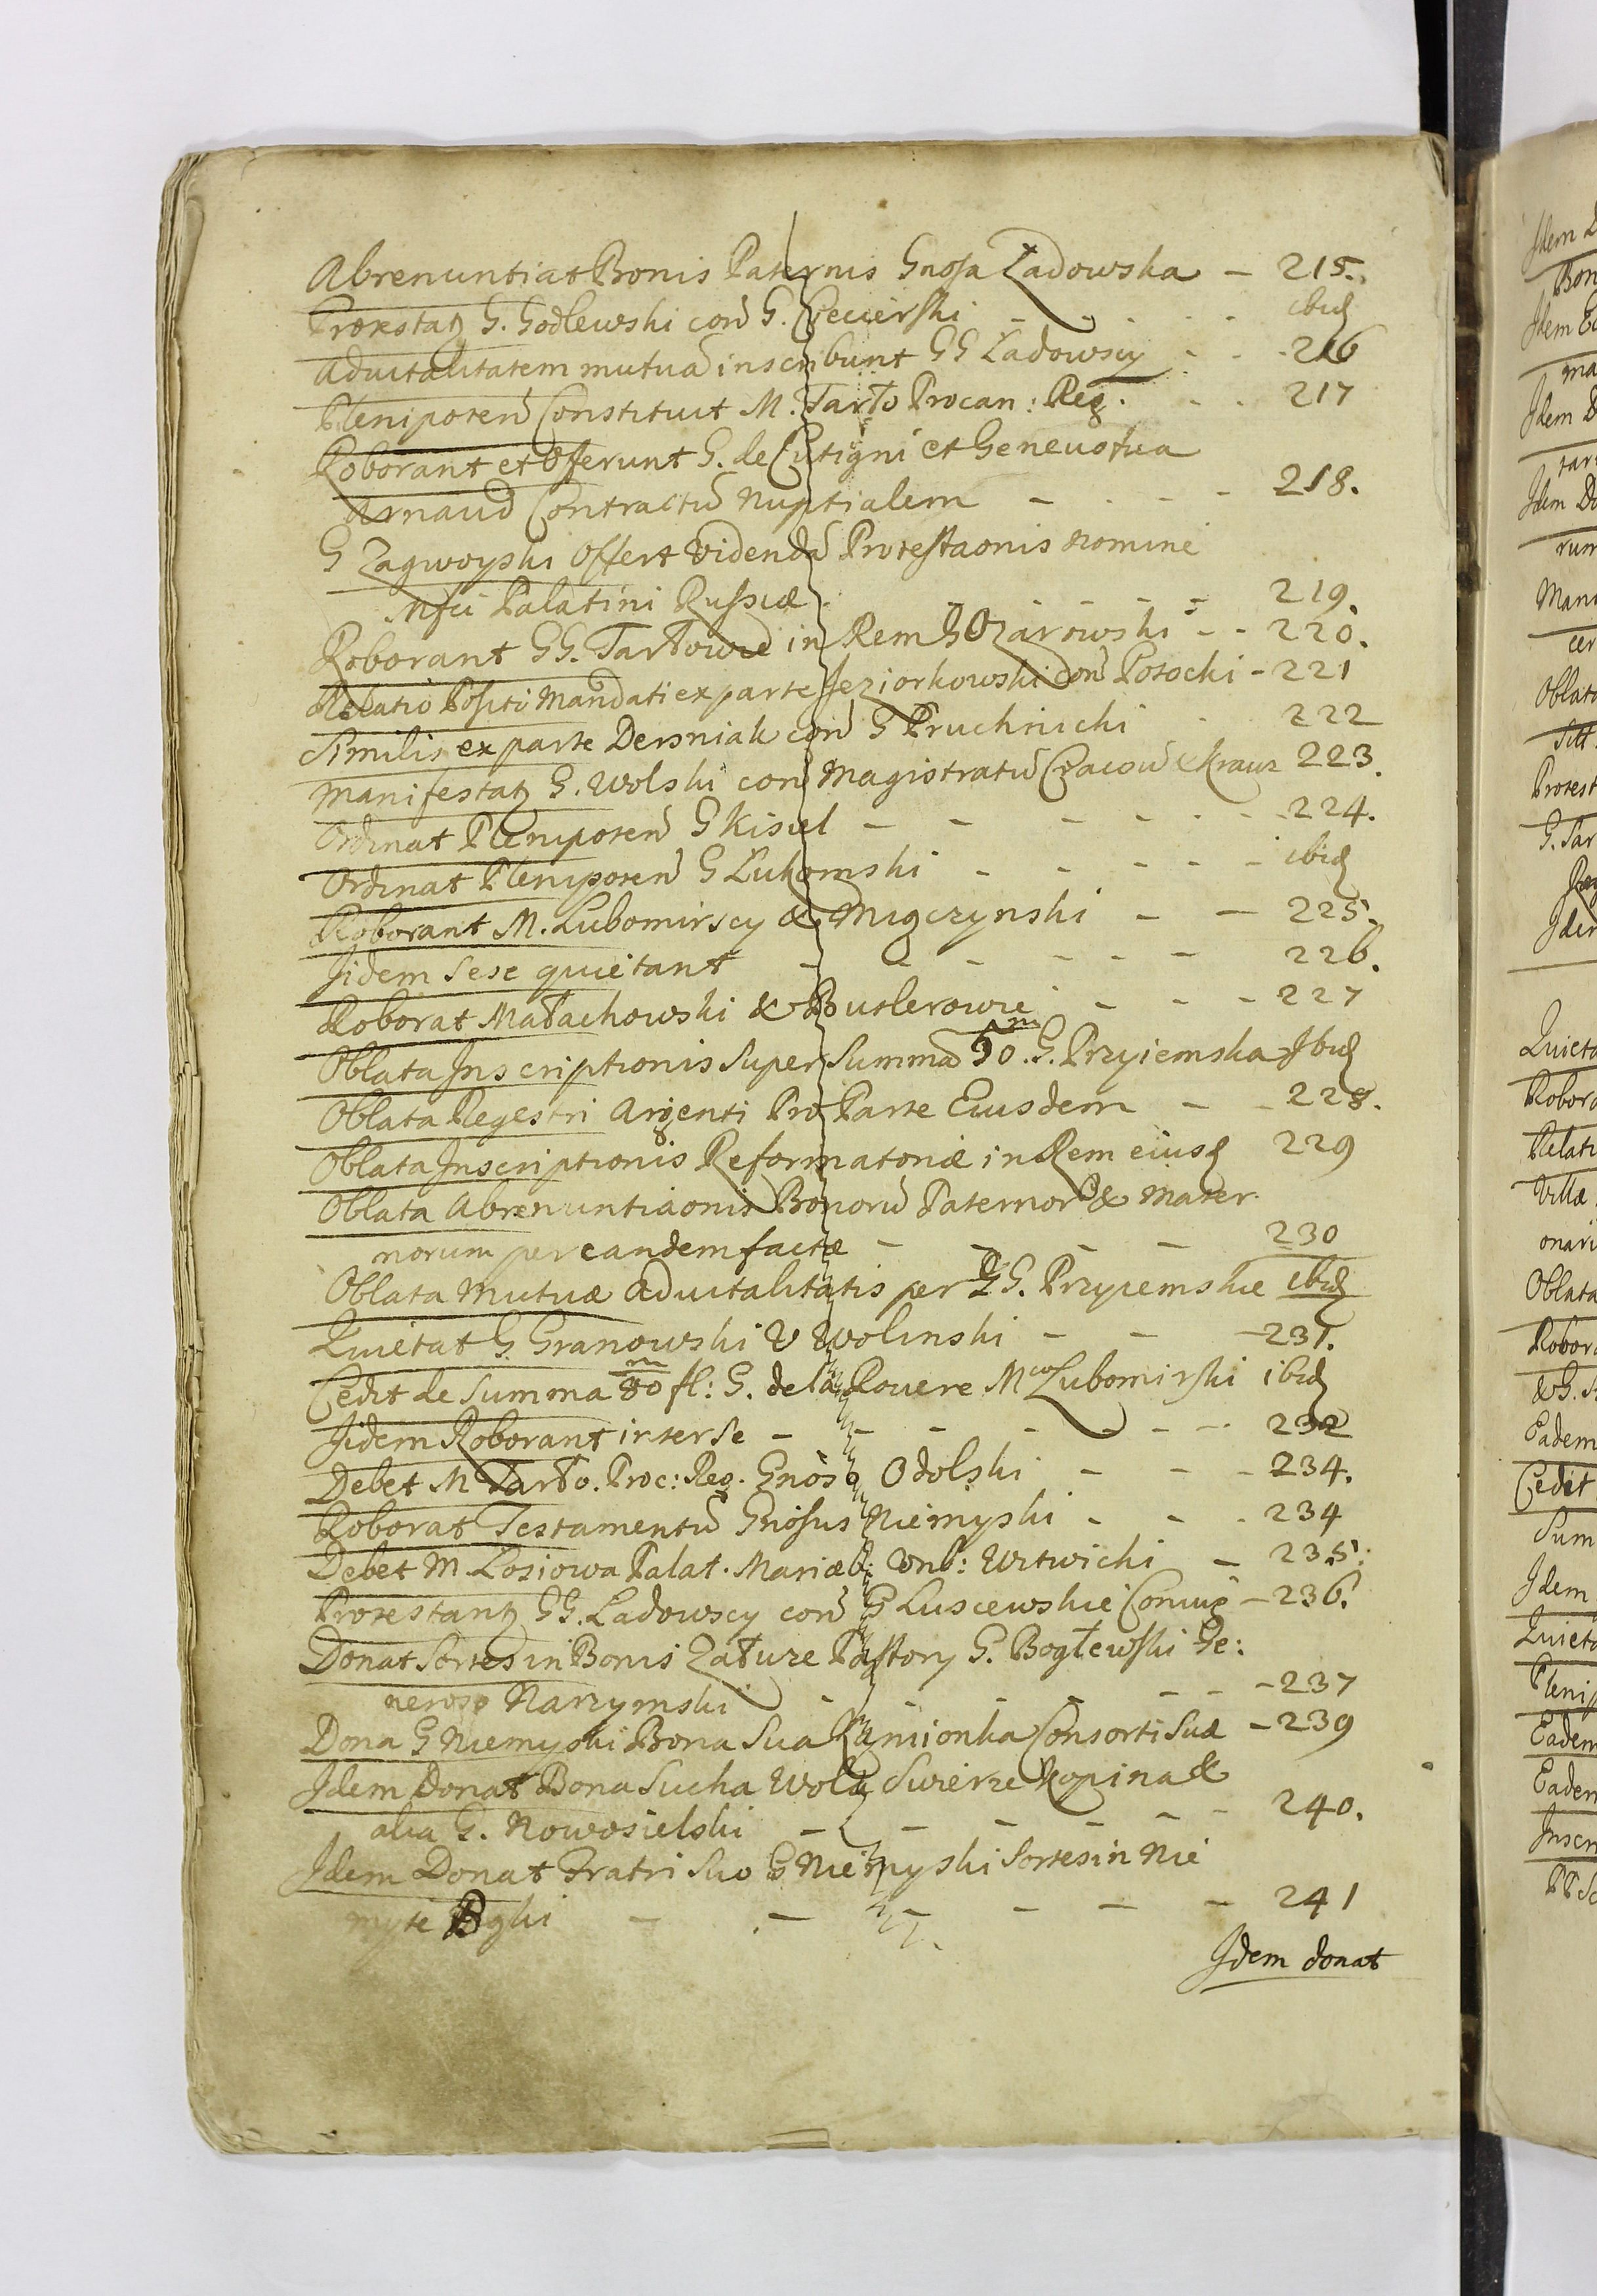 Abrenuntiat Bonis Paternis Gnosa Ładowska – 215.
Protestatz G. Godlewski con G. Ciecierski - - - - ibid
Advitalitatem mutua inscribunt GG Ładowscy - - - 216
Plenipoten Constituit M. Tarło Procan: Reg. - - 217
Roborant et Offerunt G. de Cutigni et Genevotua
Arnaud Contractu Nuptialem – - - - 218.
G Zagwoyski Offert Videnda Protestaonis nomine
Mfci Palatini Russiæ - - - - 219.
Roborant GG. Tarłowie in Rem G Ożarowski - - 220.
Relatio Positi Mandati ex parte Jeziorkowski con Potocki - 221
Similis ex parte Dersniak con G Pruchnicki - 222
Manifestatz G. Wolski con Magistratu Cracou & Kraus 223.
Ordinat Plenipoten G Kisiel – – – - - - 224.
Ordinat Plenipoten G Lukomski - - - - - ibid
Roborant M. Lubomirscy & Migczynski – – 225.
Jidem Sese quietant – - - - - – 226.
Roborat Małachowski & Butlerowie - - - 227
Oblata Inscriptionis Super Summa 50 m. G. Przyiemska Ibid
Oblata Regestri Argenti Pro Parte Eiusdem – - 228.
Oblata Inscriptionis Reformatoriæ in Rem eiusd 229
Oblata Abrenuntiaonis Bonoru Paternor & Mater-
norum per eandem factæ – – – – 230
Oblata Mutuæ Advitalitatis per GG. Przyiemskie ibid
Quietat G. Granowski V Wolinski – – – 231.
Cedit de Summa 80 m fl: G. de la Rovere Mco Lubomirski ibid
Jidem Roborant inter Se – – – - - - - 232
Debet M Tarło. Proc: Reg. Gnoso Odolski – – - 234.
Roborat Testamentu Gnosus Niemyski - - - 234
Debet M. Łosiowa Palat. Mariæb: Vnb: Witwicki – 235.
Protestantz GG. Ładowscy con G Luscewskie Coniug – 236.
Donat Sortes in Bonis Załuze Pastory G. Bogłewski Ge:
neroso Narzymski - - - - - - 237
Dona G Niemyski Bona Sua Kamionka Consorti Suæ – 239
Idem Donat Bona Sucha Wola Swierze Kopina &
alia G. Nowosielski – – – – - - 240.
Idem Donat Fratri Suo G Niemyski Sortes in Nie
myie – – – – – – 241
Idem donat
Idem
Bon
Idem
ma
Idem
Idem Do
rum
Mani
cer
Oblata
Protest
G. Sar
Quieta
Robora
Relati
Villæ
onari
Oblata
Robora
Eadem
Cedit
Sum
Idem
Quieta
Plenip
Eadem
Eadem
Inscri